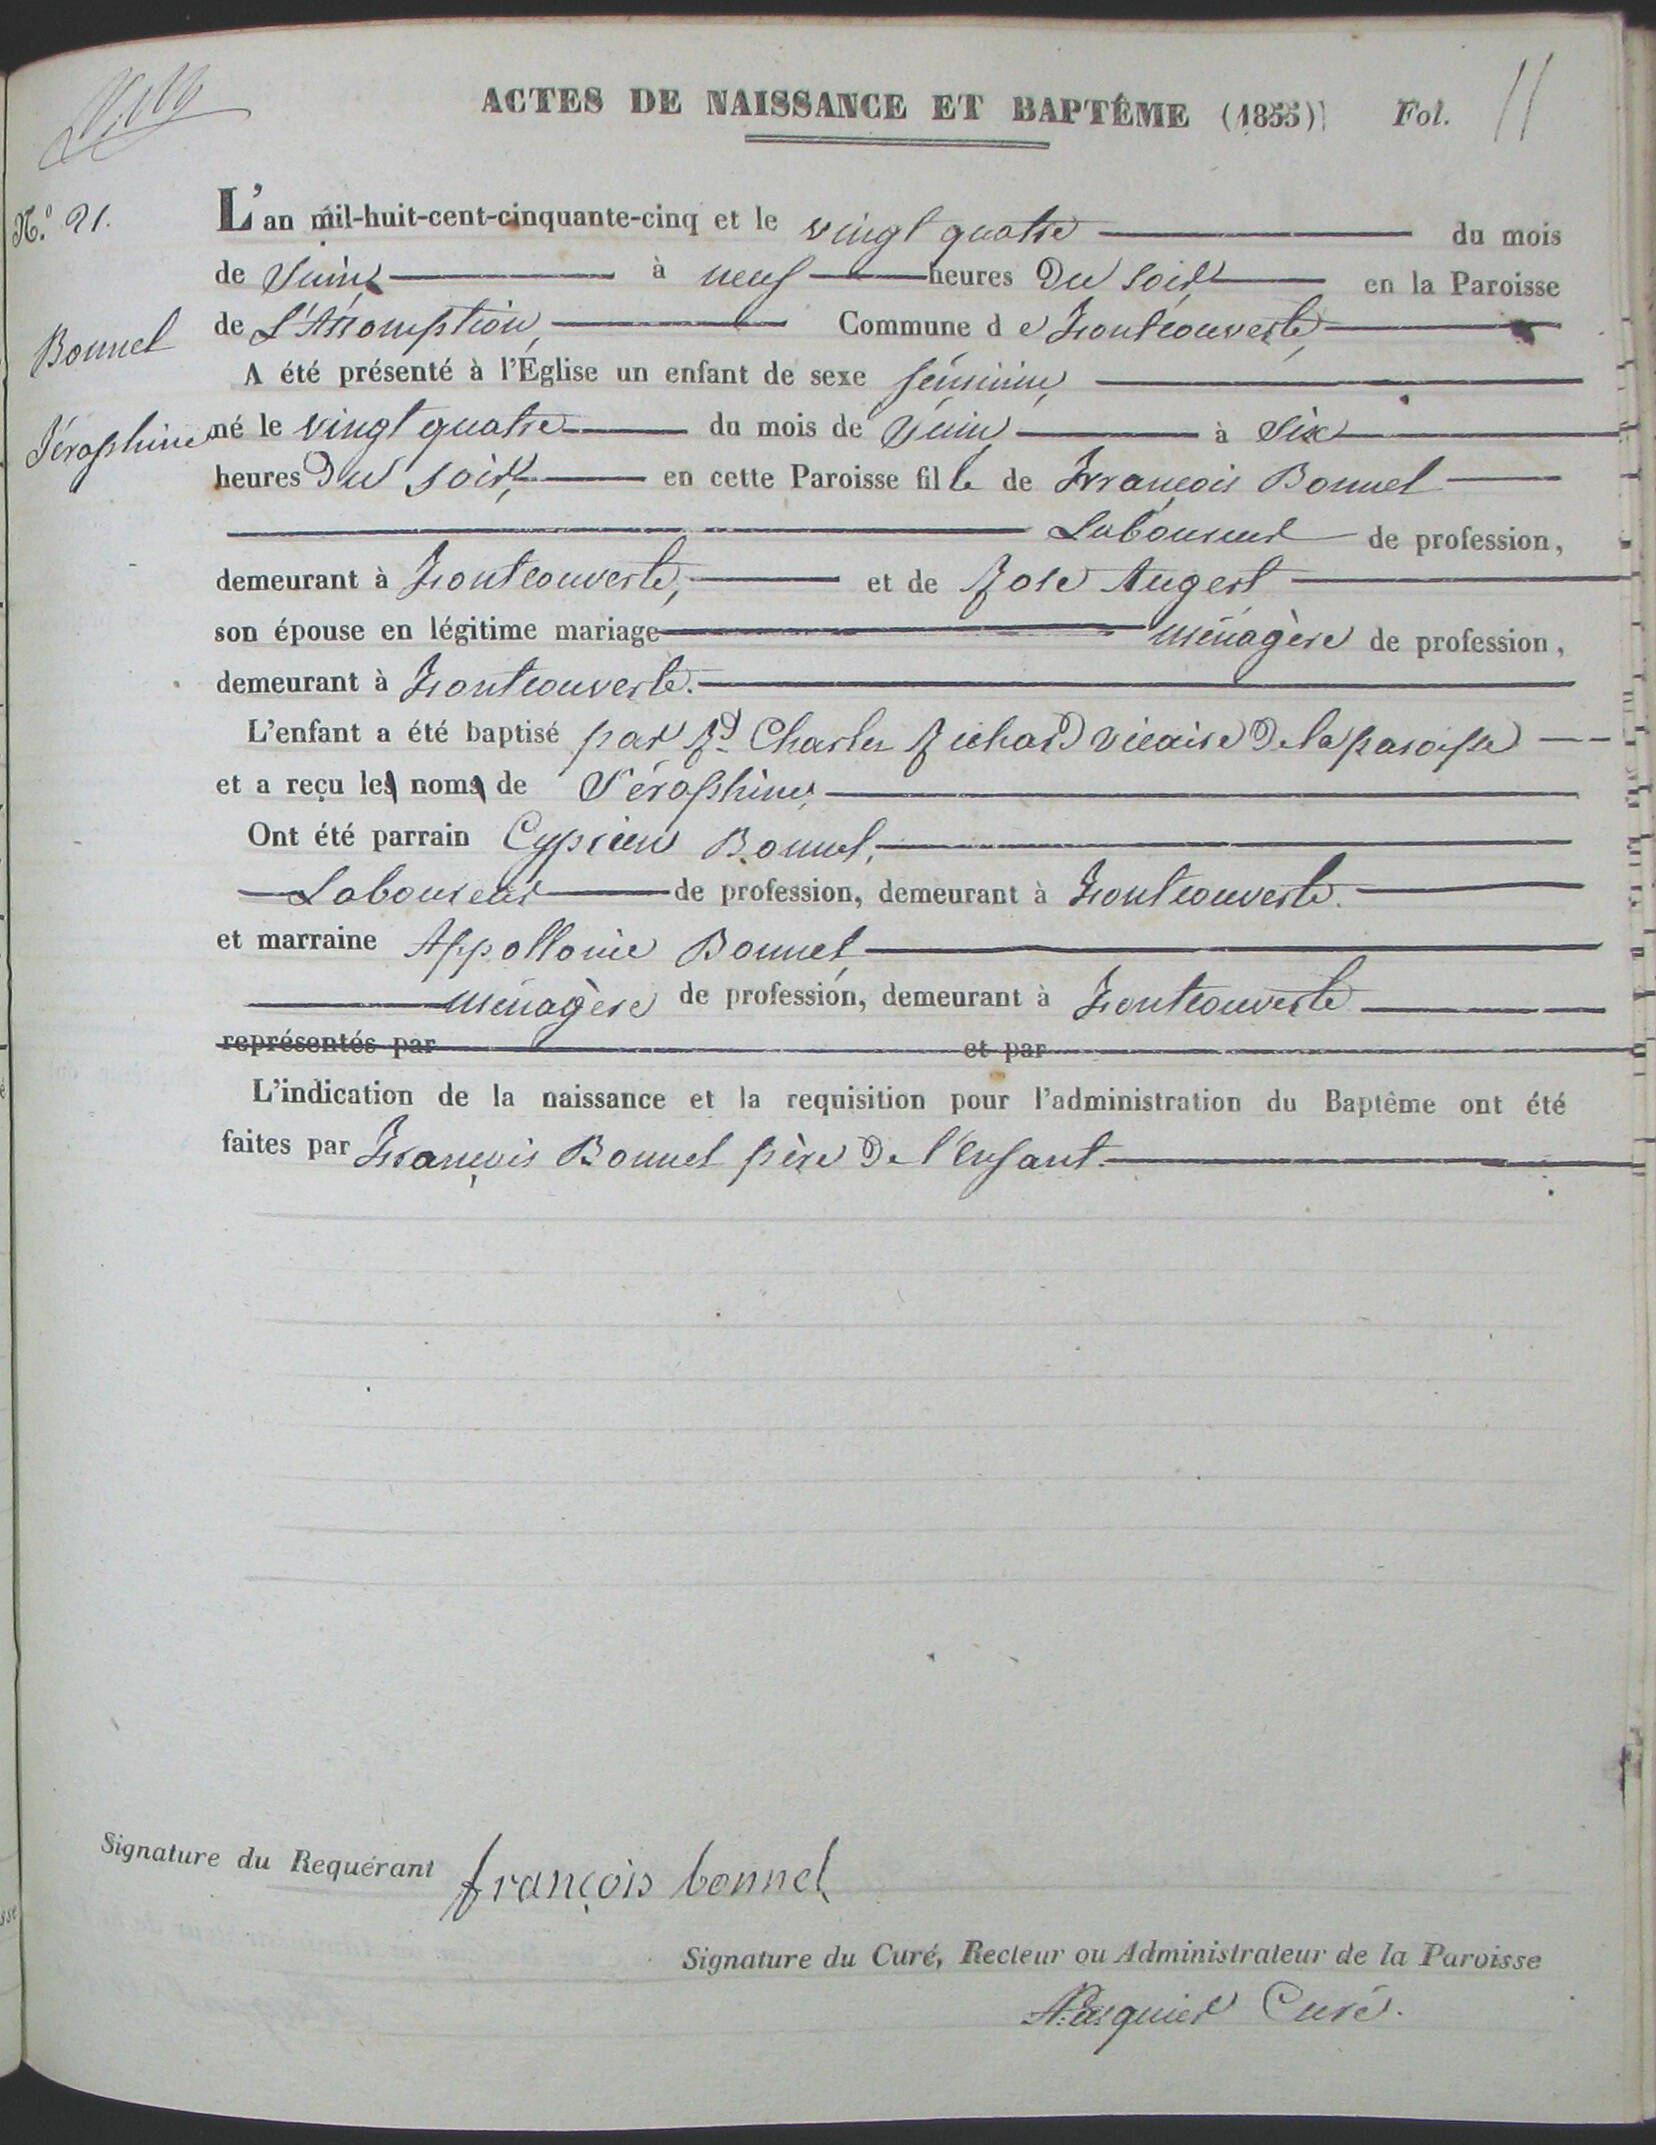 ACTES DE NAISSANCE ET BAPTÊME (1855) Fol. 11
N.º 21.
Bonnel
Séraphine
L'an mil-huit-cent-cinquante-cinq et le vingt quatre du mois
de Juin à neuf heures Du soir en la Paroisse
de L'Assomption, Commune d e Montcouverte,
A été présenté à l'Église un enfant de sexe féminin,
né le vingt quatre du mois de Juin à Six
heures Du soir, en cette Paroisse fil le de François Bonnel
Laboureur de profession,
demeurant à Montcouverte, et de Rose Augert
son épouse en légitime mariage ménagère de profession,
demeurant à Montcouverte.
L'enfant a été baptisé par Rd Charles Richard vicaire De la paroisse
et a reçu les noms de Séraphine,
Ont été parrain Cyprien Bonnel,
Laboureur de profession, demeurant à Montcouverte.
et marraine Appollonie Bonnel,
ménagère de profession, demeurant à Montcouverte
représentés par et par
L'indication de la naissance et la requisition pour l'administration du Baptême ont été
faites par François Bonnel père De l'enfant.
Signature du Requérant françois bonnel
Signature du Curé, Recteur ou Administrateur de la Paroisse
Pasquier Curé.